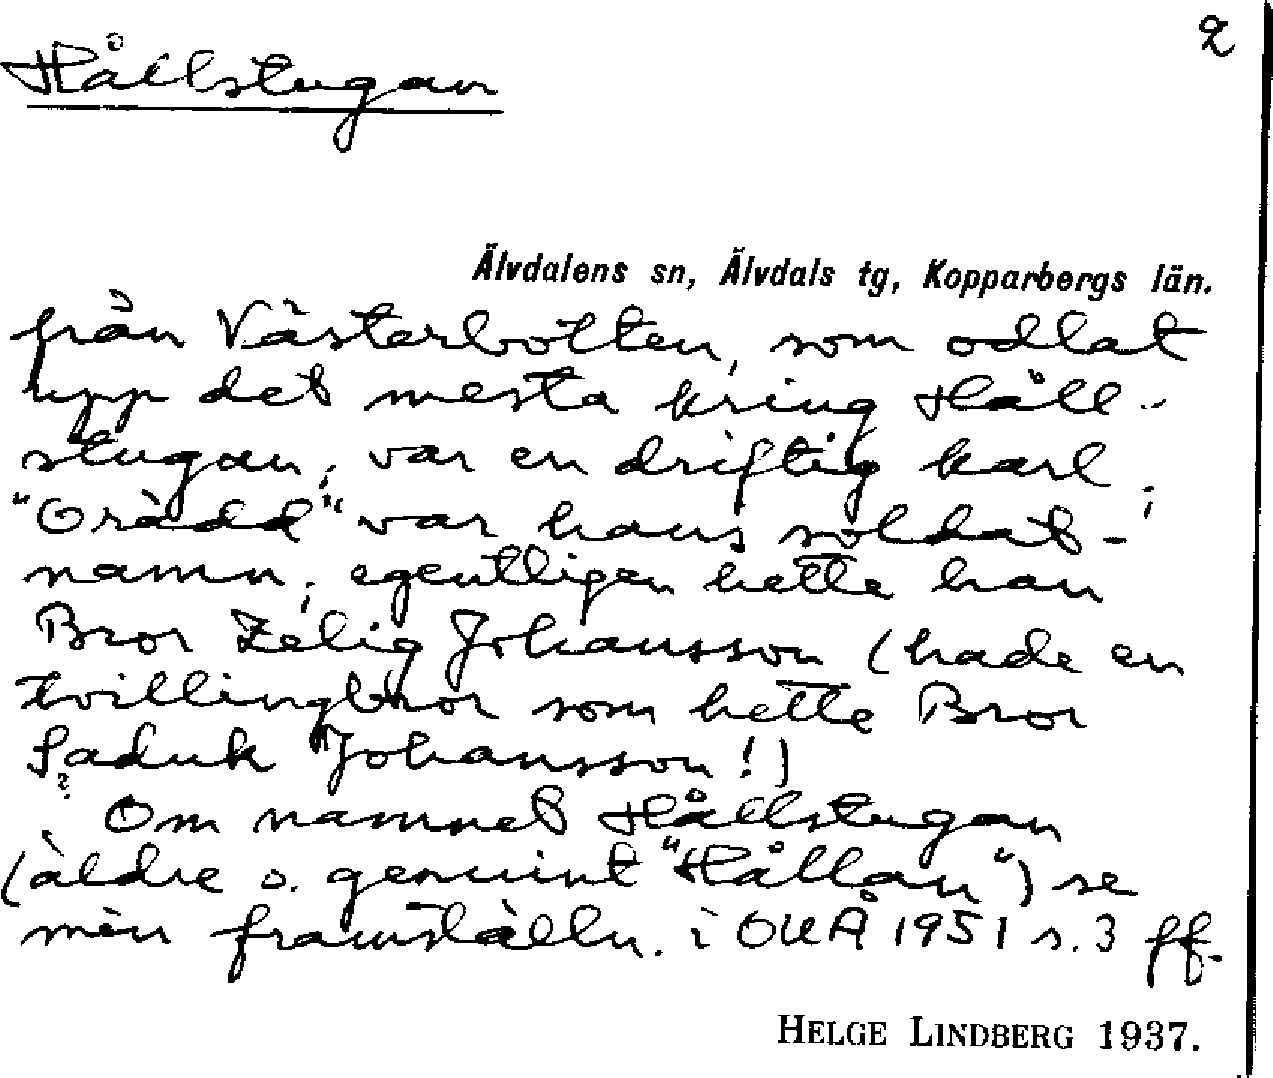 2
Hållstugan
Älvdalens sn, Älvdals tg, Kopparbergs län.
från Västerbotten, som odlat
upp det mesta kring Håll-
stugan, var en driftig karl;
"Orädd" var hans soldat-
namn; egentligen hette han
Bror Zelig Johansson (hade en
tvillingbror som hette Bror
Saduk Johansson!)
?
Om namnet Hållstugan
(äldre o. genuint "Hållan") se
min framställn. i OUÅ 1951 s. 3 ff.
HELGE LINDBERG 1937.